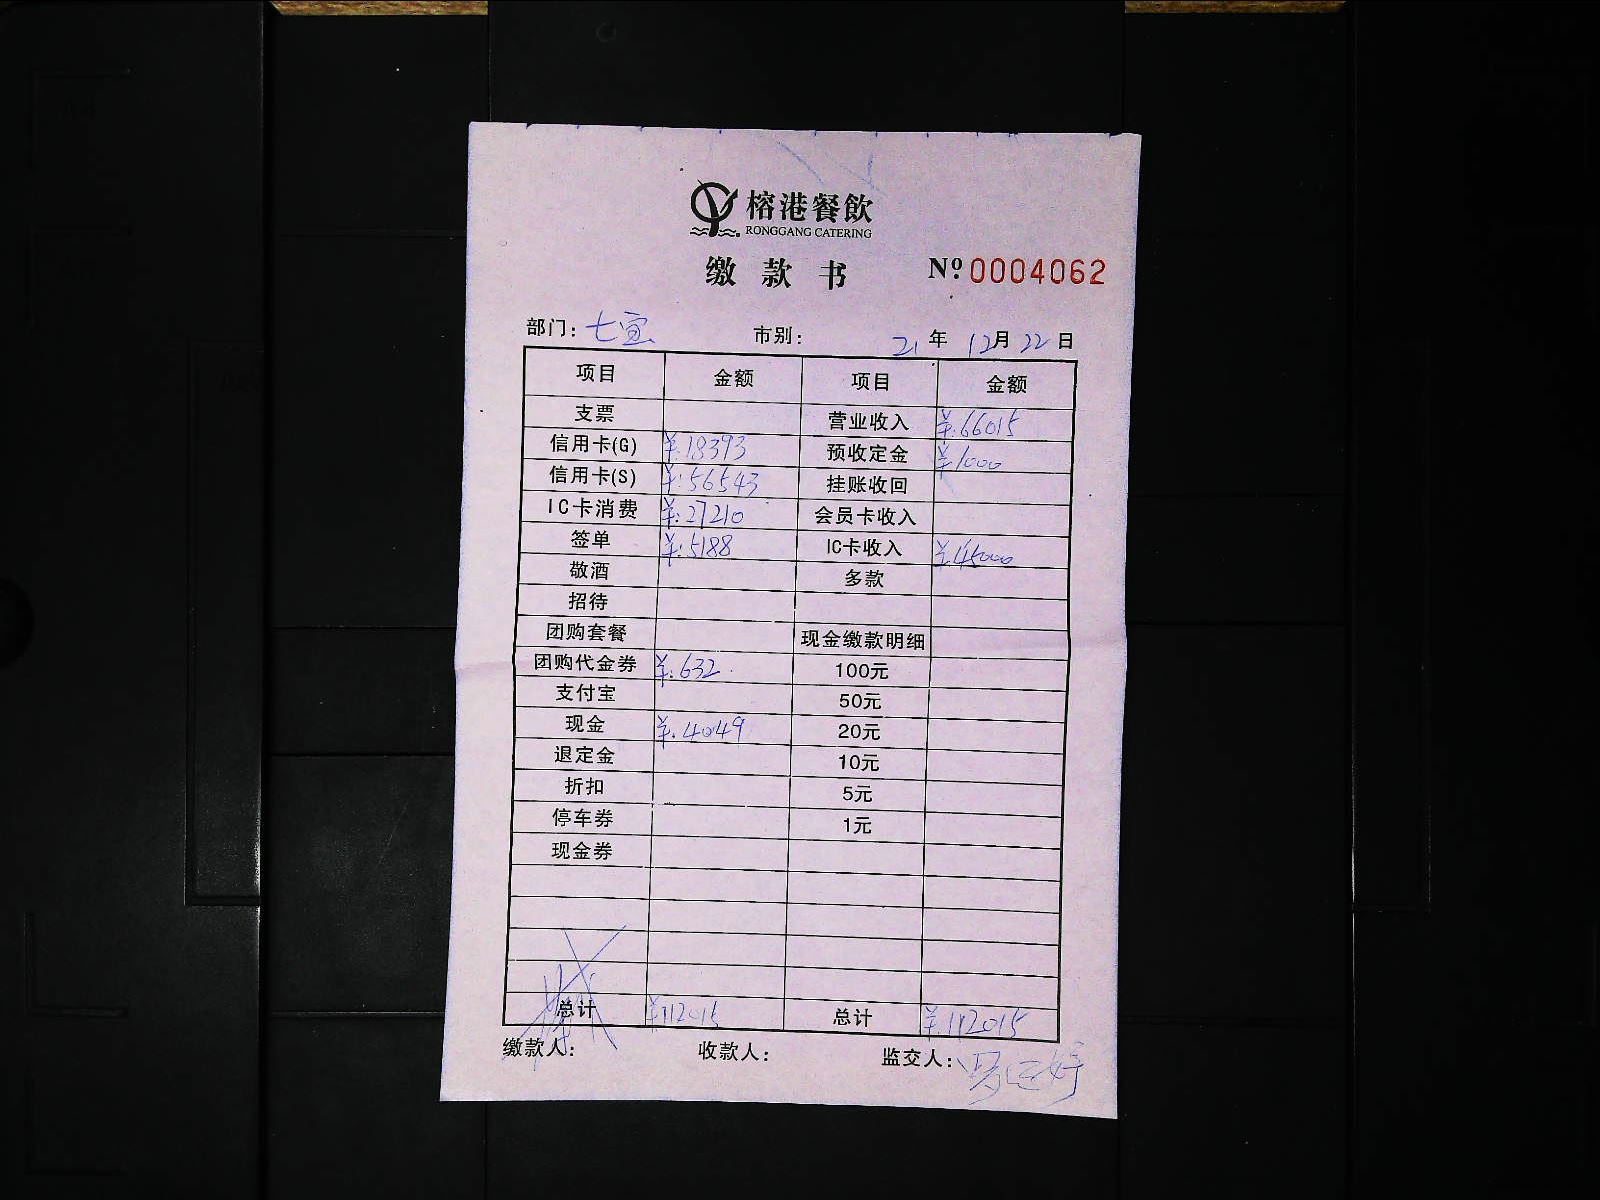 榕港餐飲
RONGGANG CATERING
缴款书 Nº 0004062
部门：七宴 市别： 21年12月22日
项目 金额 项目 金额
支票 营业收入 ¥:66015
信用卡(G) ¥:18393 预收定金 ¥1000
信用卡(S) ¥:56543 挂账收回
IC卡消费 ¥:27210 会员卡收入
签单 ¥:5188 IC卡收入 ¥:45000
敬酒 多款
招待
团购套餐 现金缴款明细
团购代金券 ¥:632 100元
支付宝 50元
现金 ¥:4049 20元
退定金 10元
折扣 5元
停车券 1元
现金券
总计 ¥112015 总计 ¥:112015
缴款人： 收款人： 监交人：